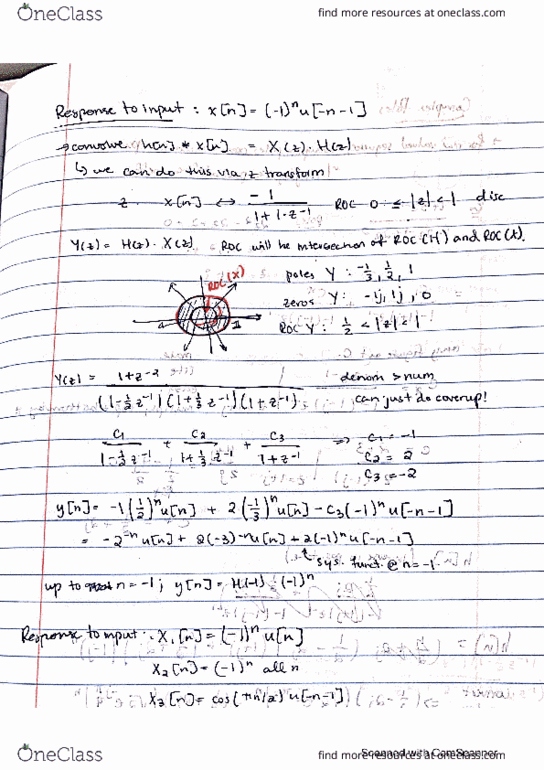 OneClass
find more resources at oneclass.com
Response to input : x[n] = (-1)ⁿ u[-n-1]
→ convolve h[n] * x[n] = X(z) · H(z)
↳ we can do this via z transform
z x[n] ↔ -1 / (1+1·z⁻¹) ROC 0 ≤ |z| < 1 disc
Y(z) = H(z) · X(z) ROC will be intersection of ROC(H) and ROC(X).
ROC(X)
poles Y : -1/3, 1/2, 1
zeros Y: -1j, 1j, 0
ROC Y: 1/2 < |z| < 1
Y(z) = (1+z⁻²) / ((1-½z⁻¹)(1+⅓z⁻¹)(1+z⁻¹)) denom > num
can just do coverup!
C₁/(1-½z⁻¹) + C₂/(1+⅓z⁻¹) + C₃/(1+z⁻¹) ⇒ C₁ = -1
C₂ = 2
C₃ = -2
y[n] = -1(½)ⁿ u[n] + 2(-⅓)ⁿ u[n] - C₃(-1)ⁿ u[-n-1]
= -2⁻ⁿ u[n] + 2(-3)⁻ⁿ u[n] + 2(-1)ⁿ u[-n-1]
sys. funct. @ n=-1
up to n = -1; y[n] = H(-1) (-1)ⁿ
Response to input : X₁[n] = (-1)ⁿ u[n]
X₂[n] = (-1)ⁿ all n
X₃[n] = cos(πn/2) u[-n-1]
OneClass
find more resources at oneclass.com
Scanned with CamScanner